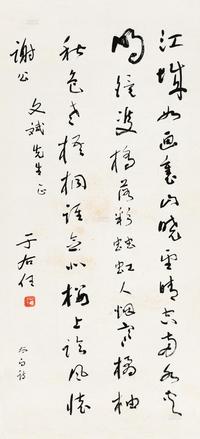 江城如畫裏山曉望晴空兩水夾
明鏡雙橋落彩虹人烟寒橘柚
秋色老梧桐誰念北樓上臨風懷
謝公
文斌先生正
于右任
太白詩